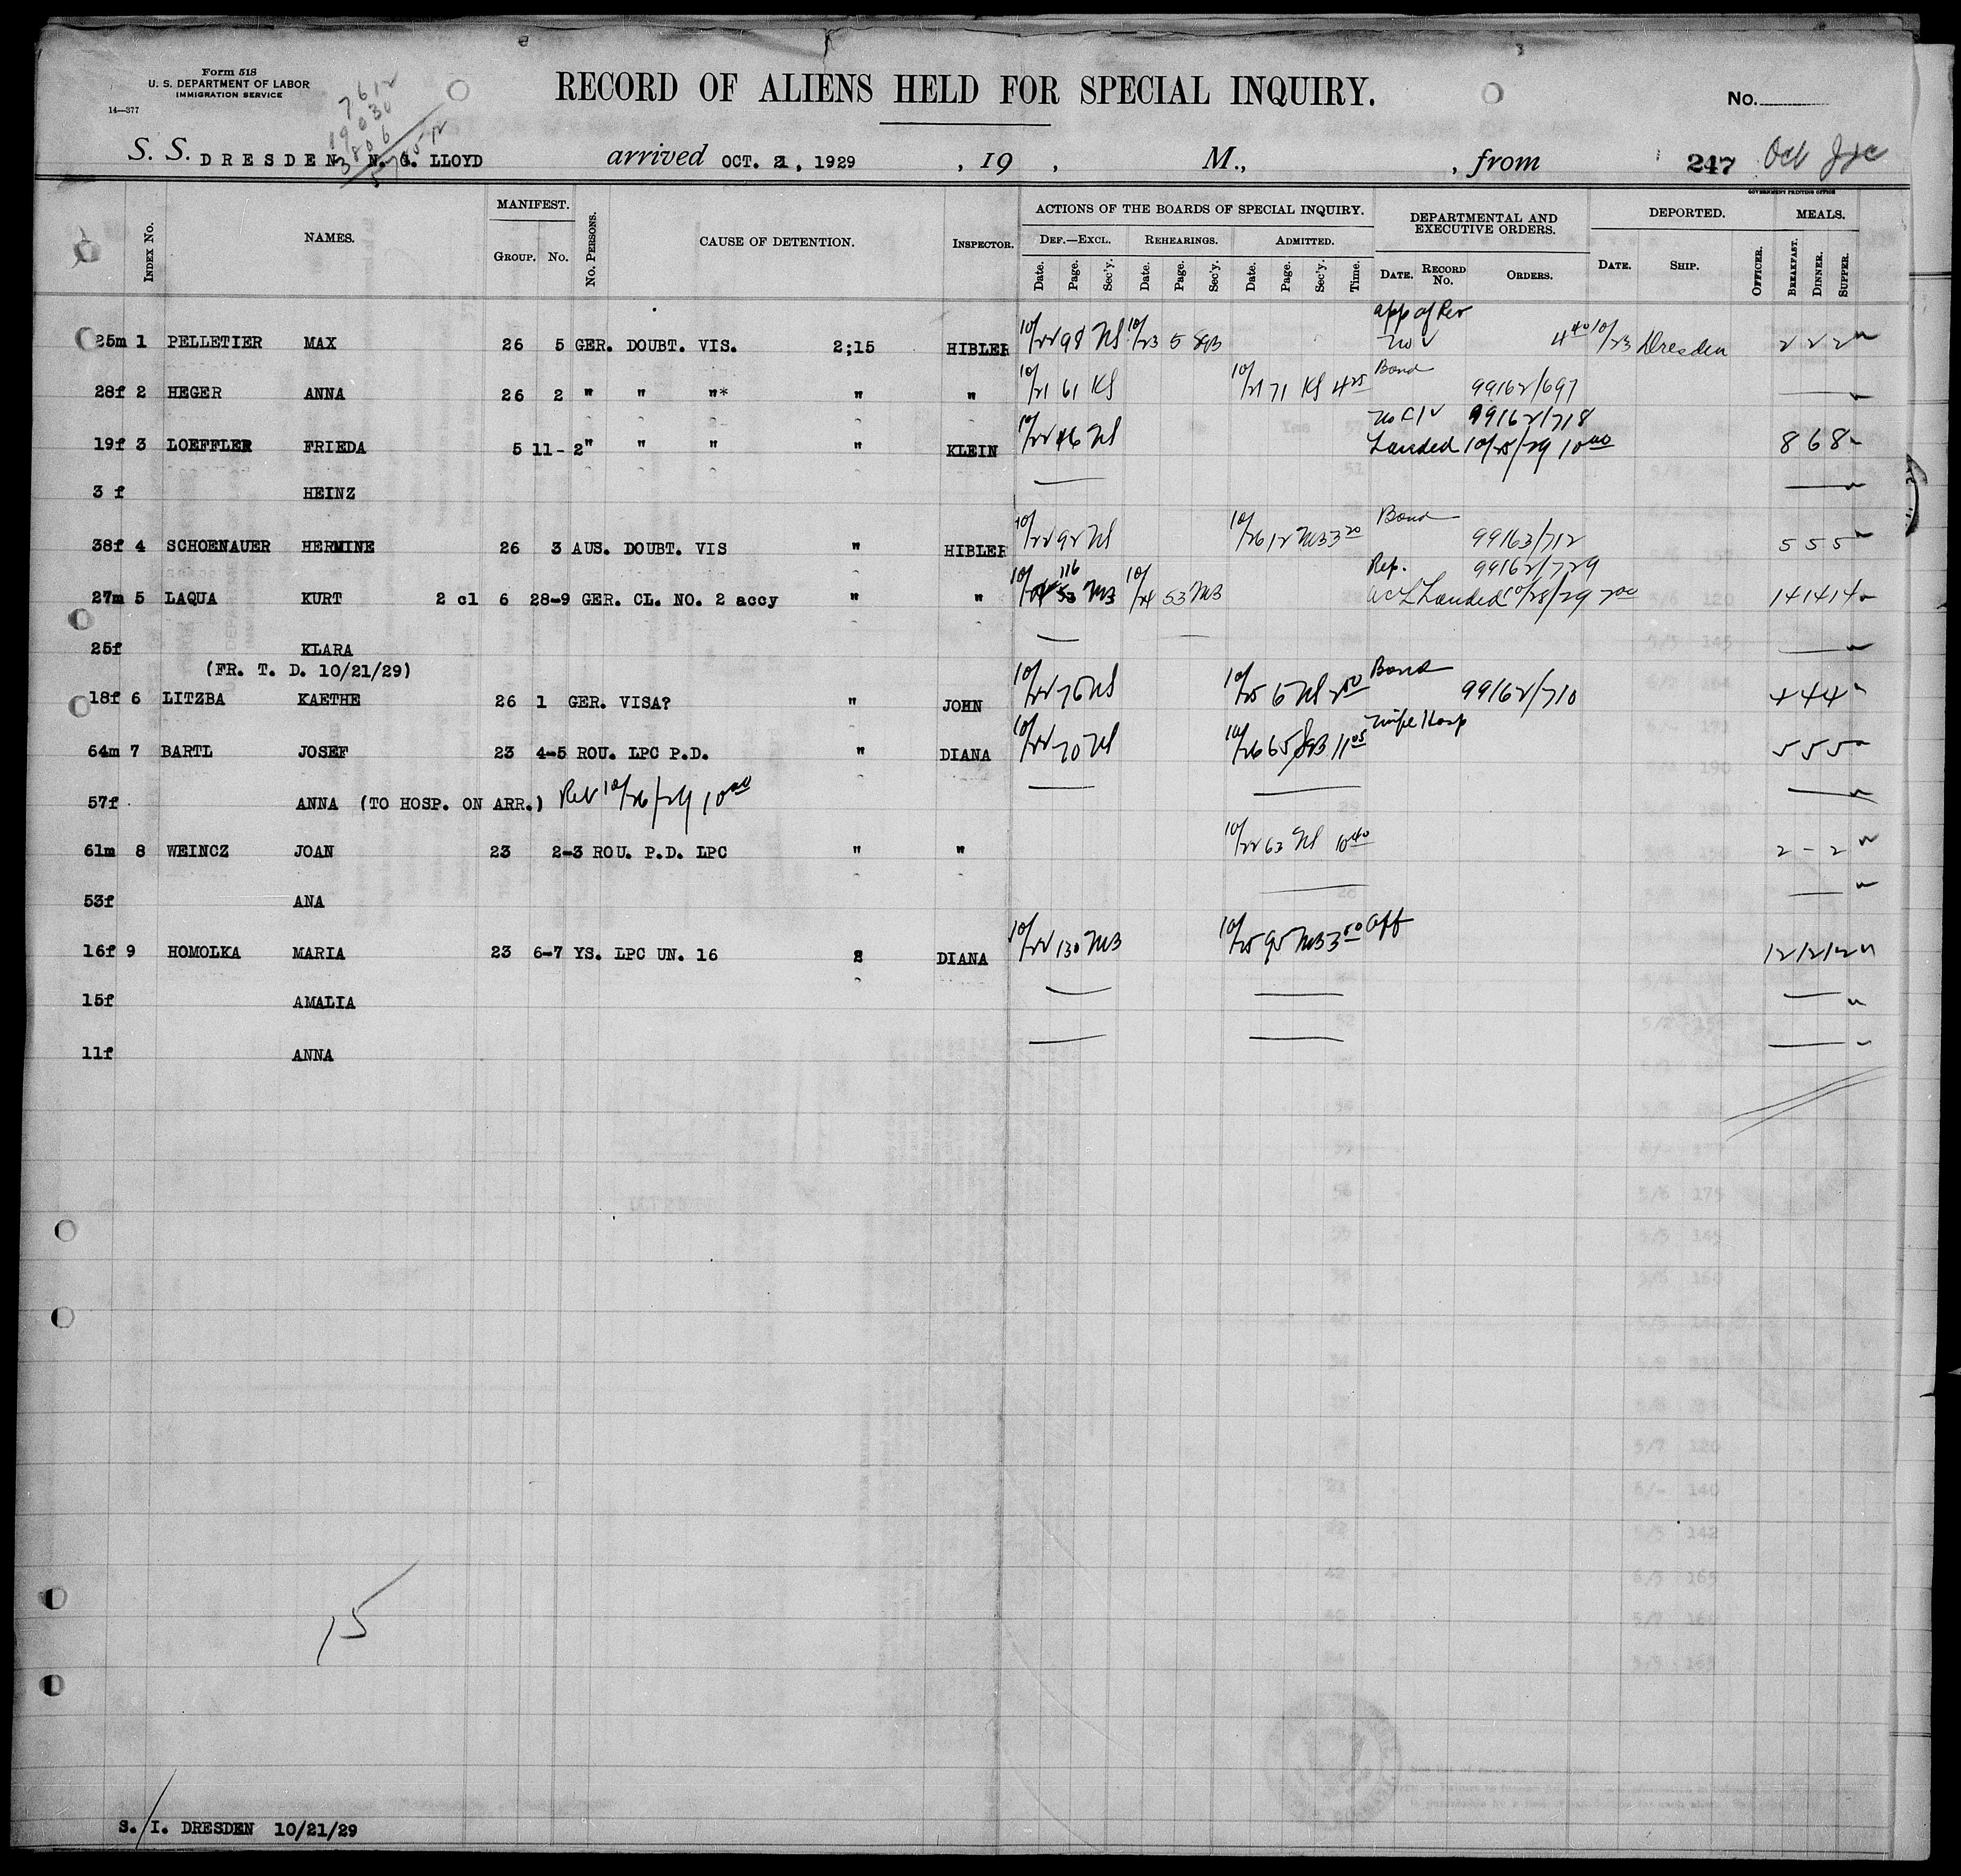 Form 518
U. S. DEPARTMENT OF LABOR
IMMIGRATION SERVICE
14—377
RECORD OF ALIENS HELD FOR SPECIAL INQUIRY.
No.
S. S. DRESDEN N. G. LLOYD arrived OCT. 21, 1929 , 19 , M., , from 247 Oct
GOVERNMENT PRINTING OFFICE
INDEX No. NAMES. MANIFEST. GROUP. No. No. PERSONS. CAUSE OF DETENTION. INSPECTOR.
ACTIONS OF THE BOARDS OF SPECIAL INQUIRY. DEPARTMENTAL AND EXECUTIVE ORDERS. DEPORTED. MEALS.
DEF.—EXCL. REHEARINGS. ADMITTED.
Date. Page. Sec'y. Date. Page. Sec'y. Date. Page. Sec'y. Time. DATE. RECORD No. ORDERS. DATE. SHIP. OFFICER. BREAKFAST. DINNER. SUPPER.
25m 1 PELLETIER MAX 26 5 GER. DOUBT. VIS. 2;15 HIBLER 10/22 98 10/23 5 4 40 10/23 Dresden 2 2 2
28f 2 HEGER ANNA 26 2 " " "* " " 10/21 61 KS 10/21 71 KS 4 25 Bond 99162/697
19f 3 LOEFFLER FRIEDA 5 11-2 " " " " KLEIN 10/22 46 99162/718 Landed 10/25/29 10 00 8 6 8
3 f HEINZ
38f 4 SCHOENAUER HERMINE 26 3 AUS. DOUBT. VIS " HIBLER 10/22 92 10/26 12 MB 3 20 Bond 99163/712 5 5 5
27m 5 LAQUA KURT 2 cl 6 28-9 GER. CL. NO. 2 accy " " 116 MB 10/24 53 MB Rep. 99162/729 Landed 10/28/29 2 00 14 14 14
25f KLARA
(FR. T. D. 10/21/29)
18f 6 LITZBA KAETHE 26 1 GER. VISA? " JOHN 10/22 76 10/25 6 2 50 Bond 99162/710 4 4 4
64m 7 BARTL JOSEF 23 4-5 ROU. LPC P.D. " DIANA 10/22 70 10/26 65 11 05 Wife Hosp 5 5 5
57f ANNA (TO HOSP. ON ARR.) Rel 10/26/29 10 00
61m 8 WEINCZ JOAN 23 2-3 ROU. P.D. LPC " " 10/22 63 10 40 2 - 2
53f ANA
16f 9 HOMOLKA MARIA 23 6-7 YS. LPC UN. 16 DIANA 10/22 130 MB 10/25 95 MB 3 50 12 12 12
15f AMALIA
11f ANNA
15
S. I. DRESDEN 10/21/29